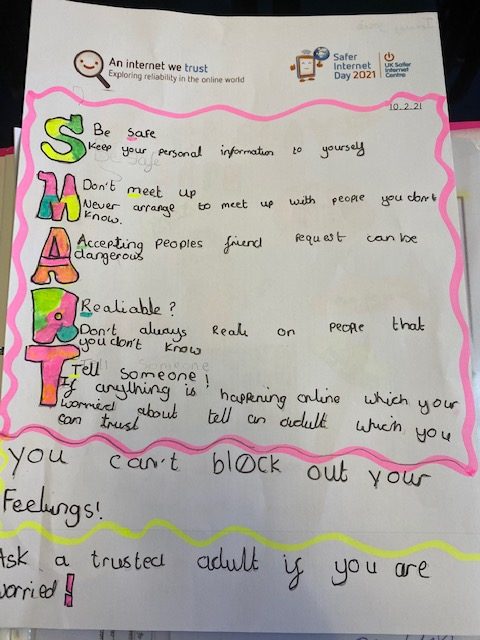 An internet we trust
Exploring reliability in the online world
Safer
Internet
Day 2021
UK Safer
Internet
Centre
10.2.21
S Be safe
Keep your personal information to yourself
M Don't meet up
Never arrange to meet up with people you don't
know.
A Accepting peoples friend request can be
dangerous
R Realiable?
Don't always reali on people that
you don't know
T Tell someone!
If anything is happening online which your
worried about tell an adult which you
can trust
you can't block out your
Feelungs!
Ask a trusted adult if you are
worried!